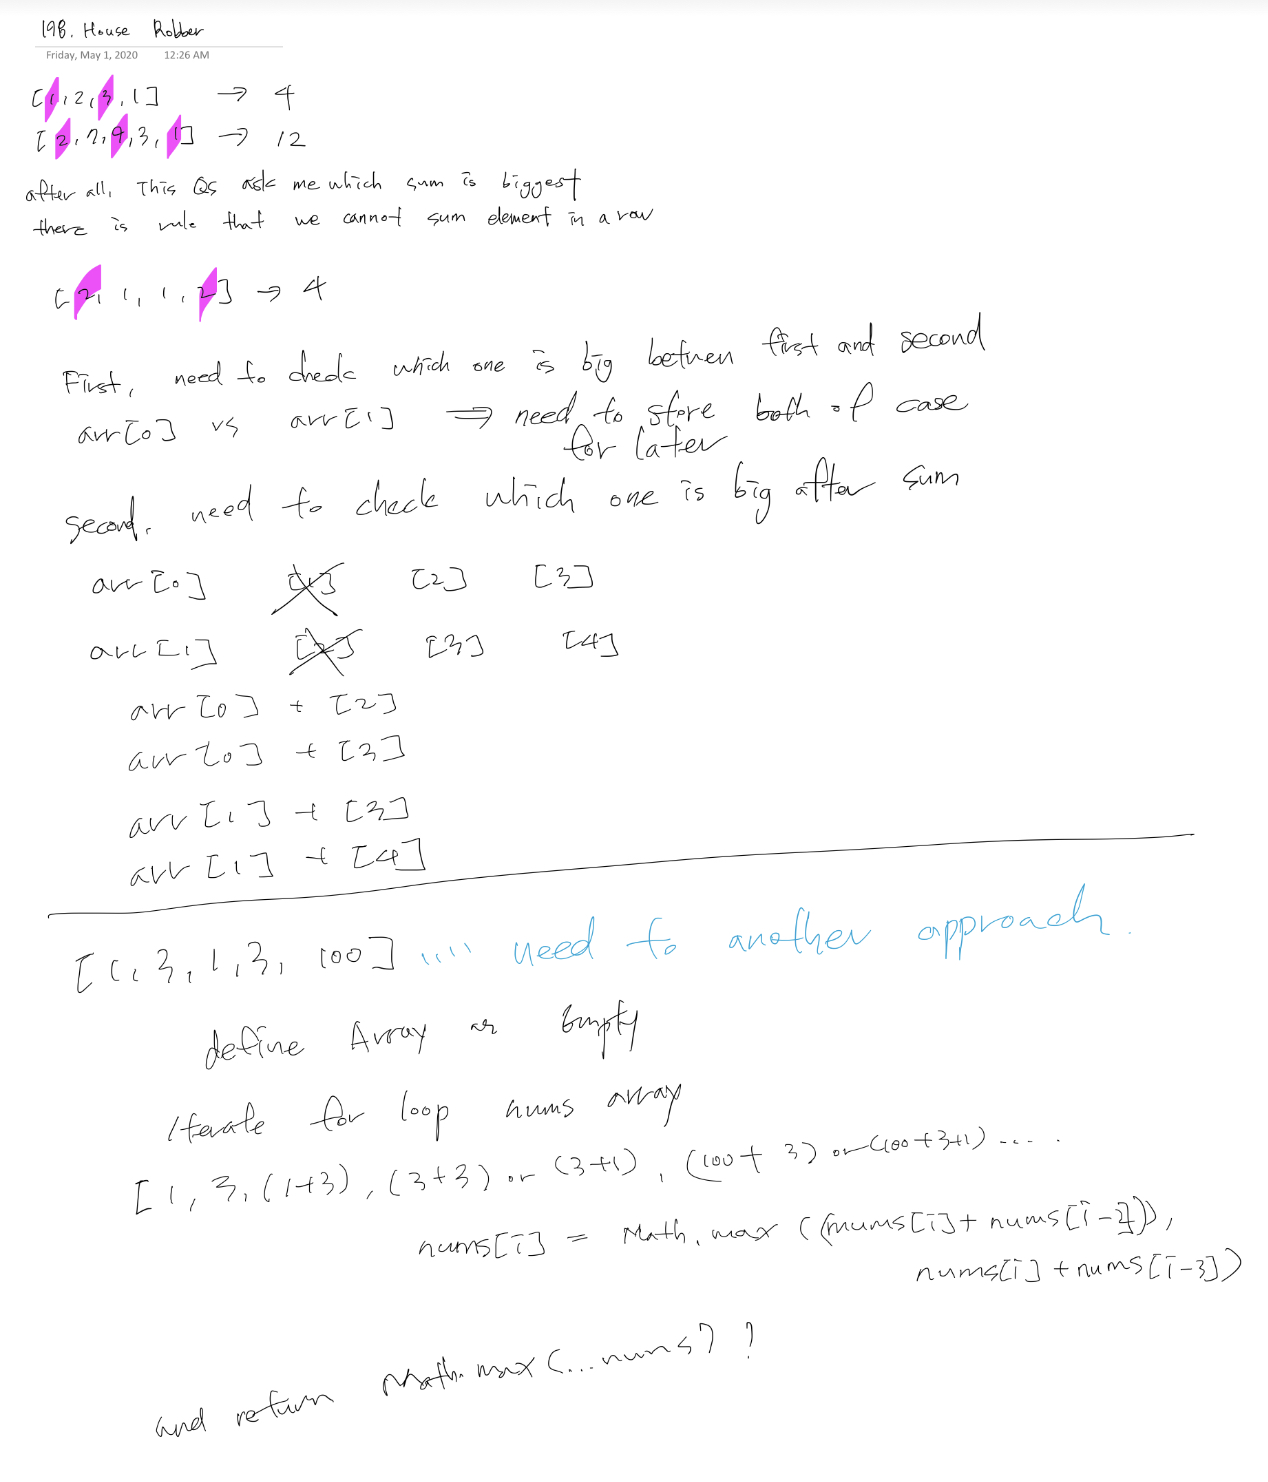 198. House Robber
Friday, May 1, 2020 12:26 AM
[1, 2, 3, 1] → 4
[2, 7, 9, 3, 1] → 12
after all, This Qs ask me which sum is biggest
there is rule that we cannot sum element in a row
[2, 1, 1, 2] → 4
First, need to check which one is big between first and second
arr[0] vs arr[1] ⇒ need to store both of case
for later
Second, need to check which one is big after sum
arr[0] [1] [2] [3]
arr[1] [2] [3] [4]
arr[0] + [2]
arr[0] + [3]
arr[1] + [3]
arr[1] + [4]
[1, 3, 1, 3, 100] .... need to another approach.
define Array as Empty
Iterate for loop nums array
[1, 3, (1+3), (3+3) or (3+1), (100+3) or (100+3+1) ....
nums[i] = Math.max((nums[i] + nums[i-2]),
nums[i] + nums[i-3])
and return Math.max(...nums) ?